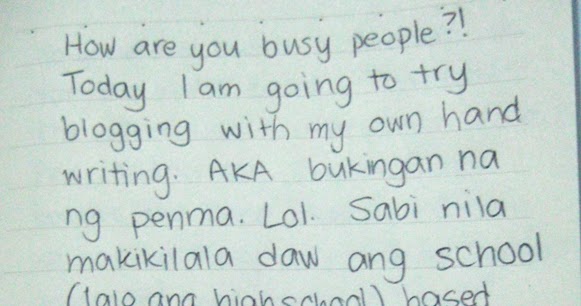 How are you busy people?!
Today I am going to try
blogging with my own hand
writing. AKA bukingan na
ng penma. Lol. Sabi nila
makikilala daw ang school
(lalo ang highschool) based